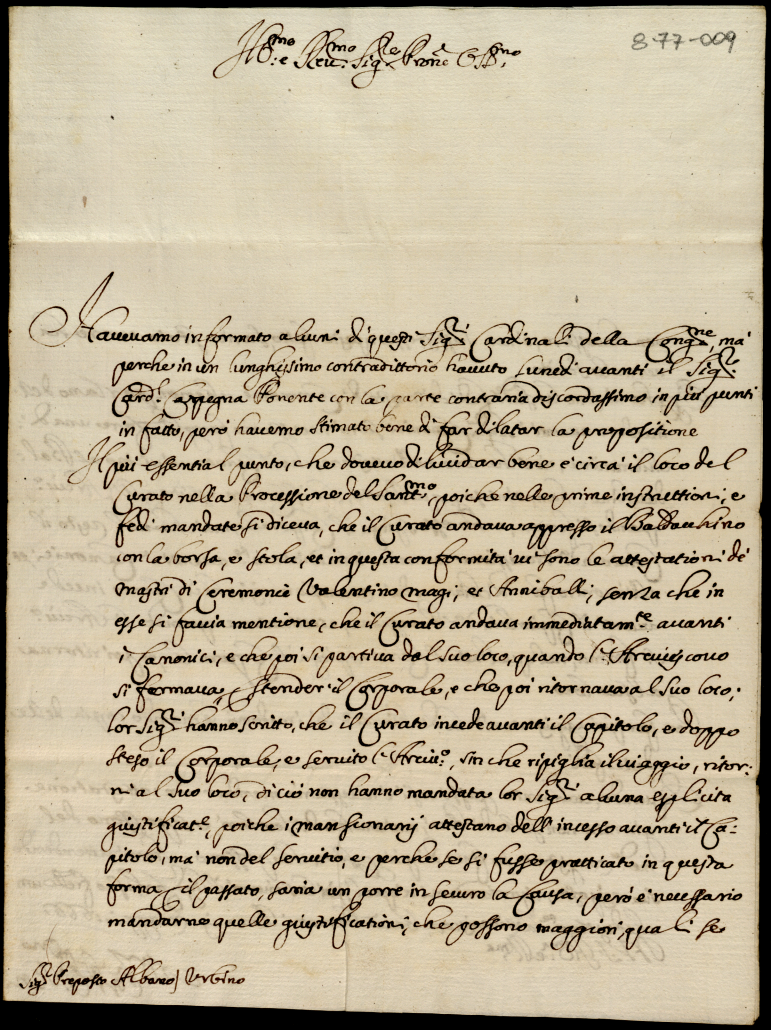 8-77-009
Ill.mo e Reu.mo Sig.re Prone Oss.mo
Haueuamo informato alcuni di questi Sig.ri Cardinali della Cong.ne, mà
perche in un lunghissimo contradittorio hauuto Lunedì auanti il Sig.r
Card.l Carpegna Ponente con la parte contraria discordassimo in più punti
in fatto, però hauemo stimato bene di far dilatar la propositione
Il più essential punto, che doueuo dilucidar bene è circà il loco del
Curato nella Processione del Sant.mo, poiche nelle prime instruttioni, e
fedi mandate si diceua, che il Curato andaua appresso il Baldacchino
con la borsa, e stola, et in questa conformità ui sono le attestationi de
mastri di Ceremonie Valentino magi, et Anniballi, senza che in
esse si faccia mentione, che il Curato andaua immediatam.te auanti
i Canonici, e che poi si partiua dal suo loco, quando l'Arciuescouo
si fermaua, p stender il Corporale, e che poi ritornaua al suo loco;
lor Sig.ri hanno scritto, che il Curato incede auanti il Capitolo, e doppo
steso il Corporale, e seruito l'Arciu.o, sin che ripiglia il uiaggio, ritor:
ni al suo loco, di ciò non hanno mandata lor Sig.ri alcuna esplicita
giustificat.e, poiche i mansionarij attestano dell'incesso auanti il Ca-
pitolo, mà non del seruitio, e perche se si fusse pratticato in questa
forma p il passato, saria un porre in securo la Causa, però è necessario
mandarne quelle giustificationi, che possono maggiori, quali se
Sig.r Preposto Albani / Urbino